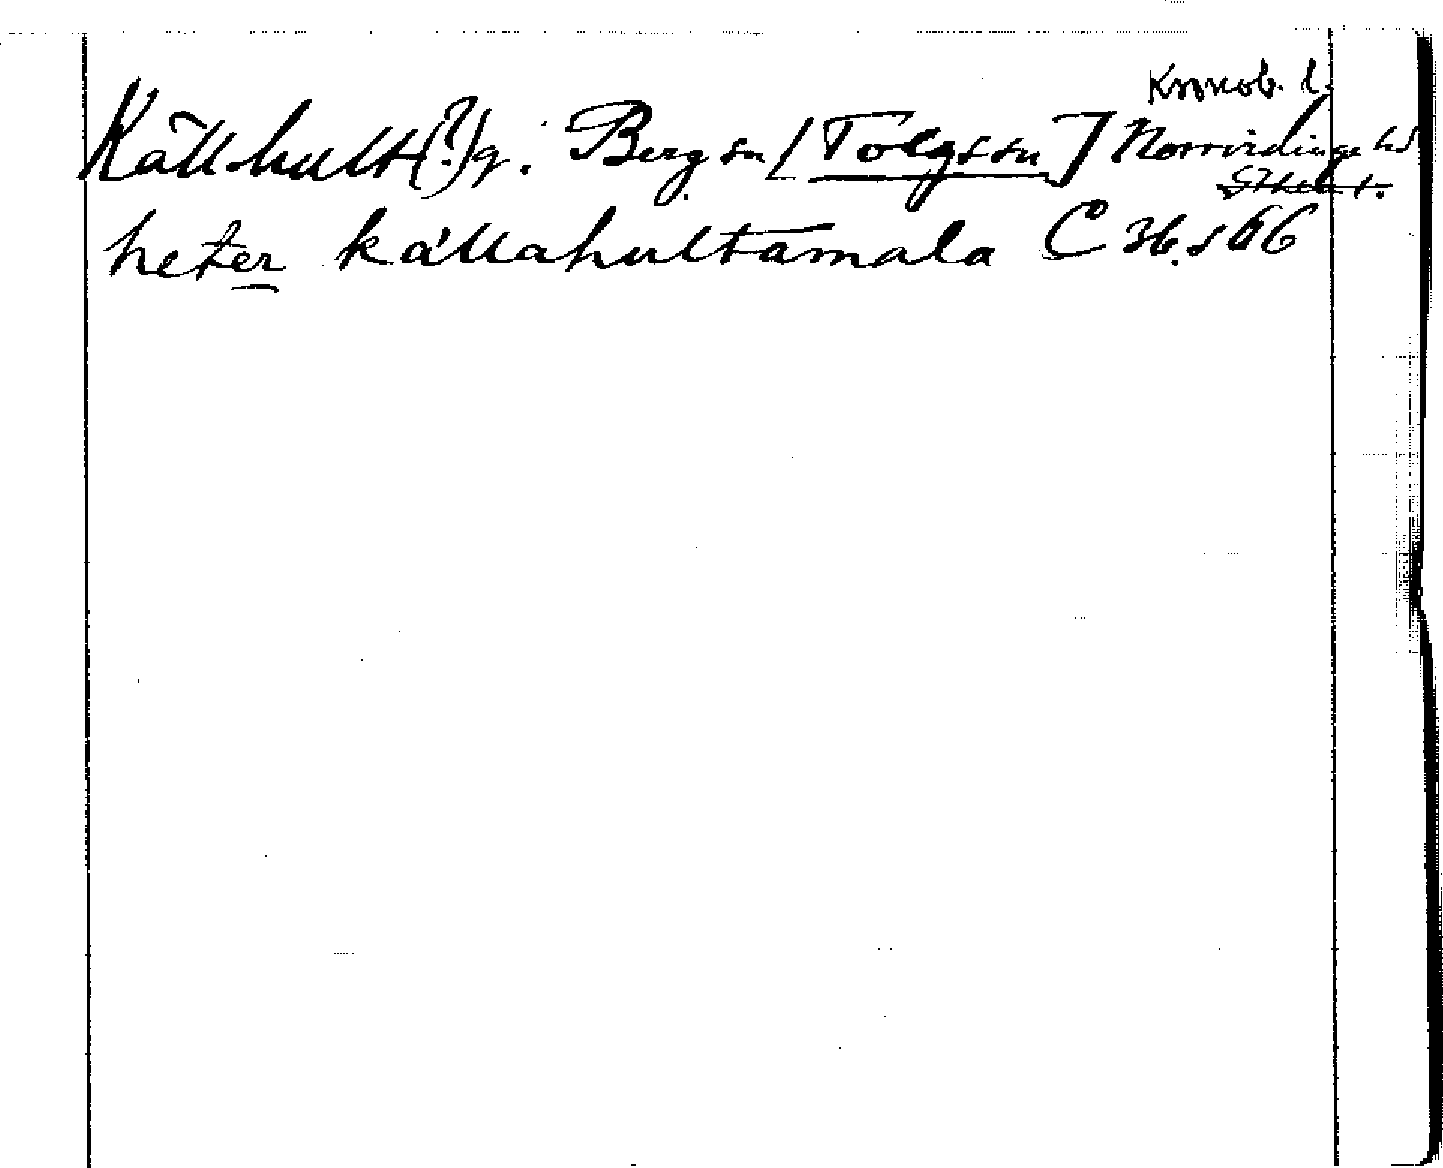 Kronob. l.
Källhult (?) g. Berg sn [Tolgs sn] Norrvidinge hd
heter källahultamala C 36. s 66